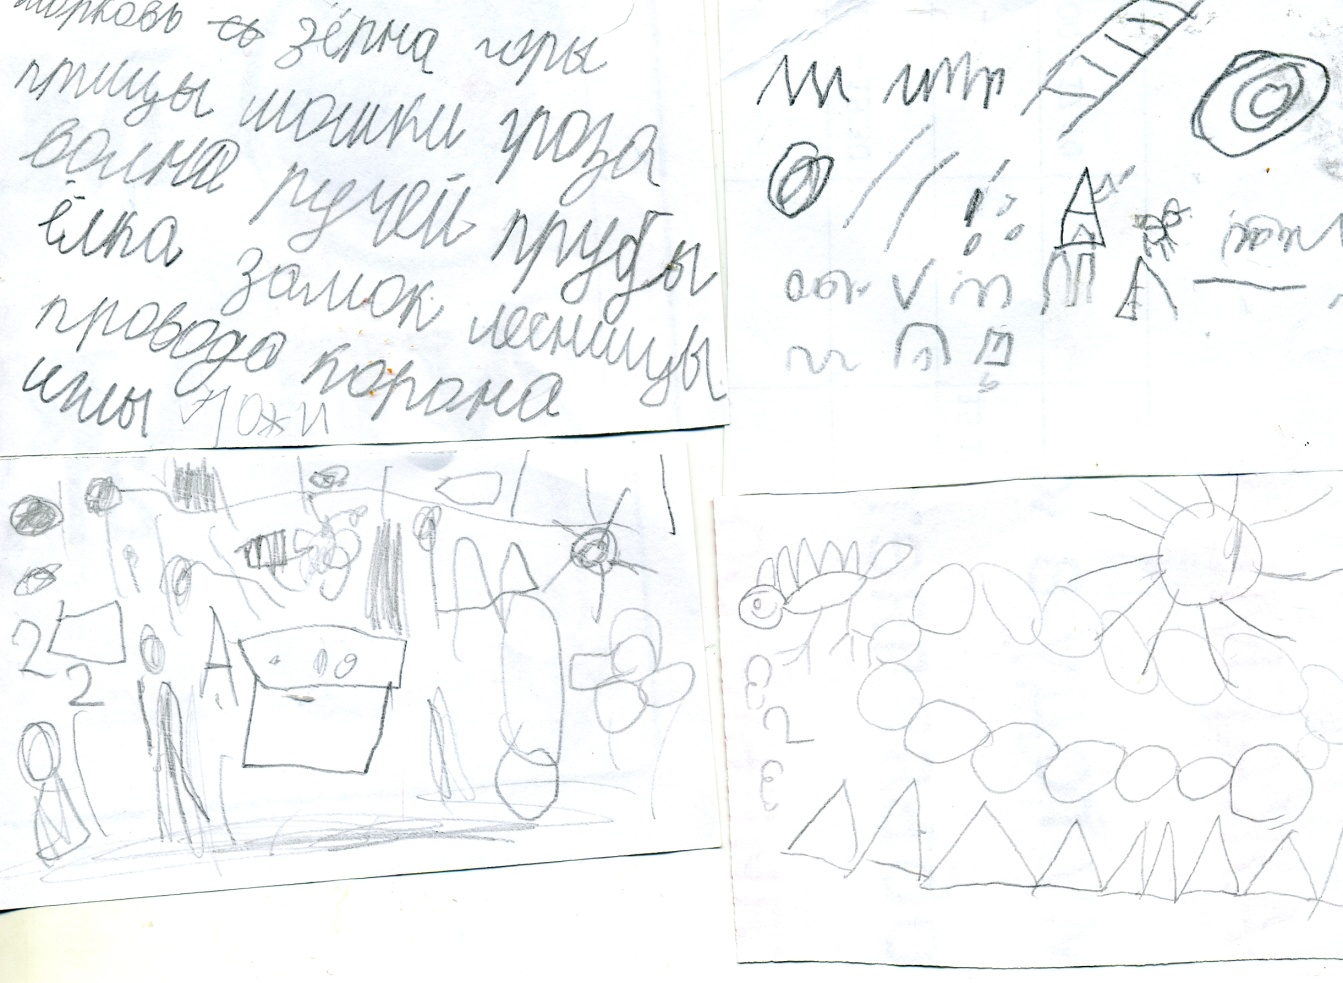 морковь зёрна горы
птицы мошки гроза
волна ручей трубы
ёлка замок лесницы
провода корона
иглы
2
2
А
2